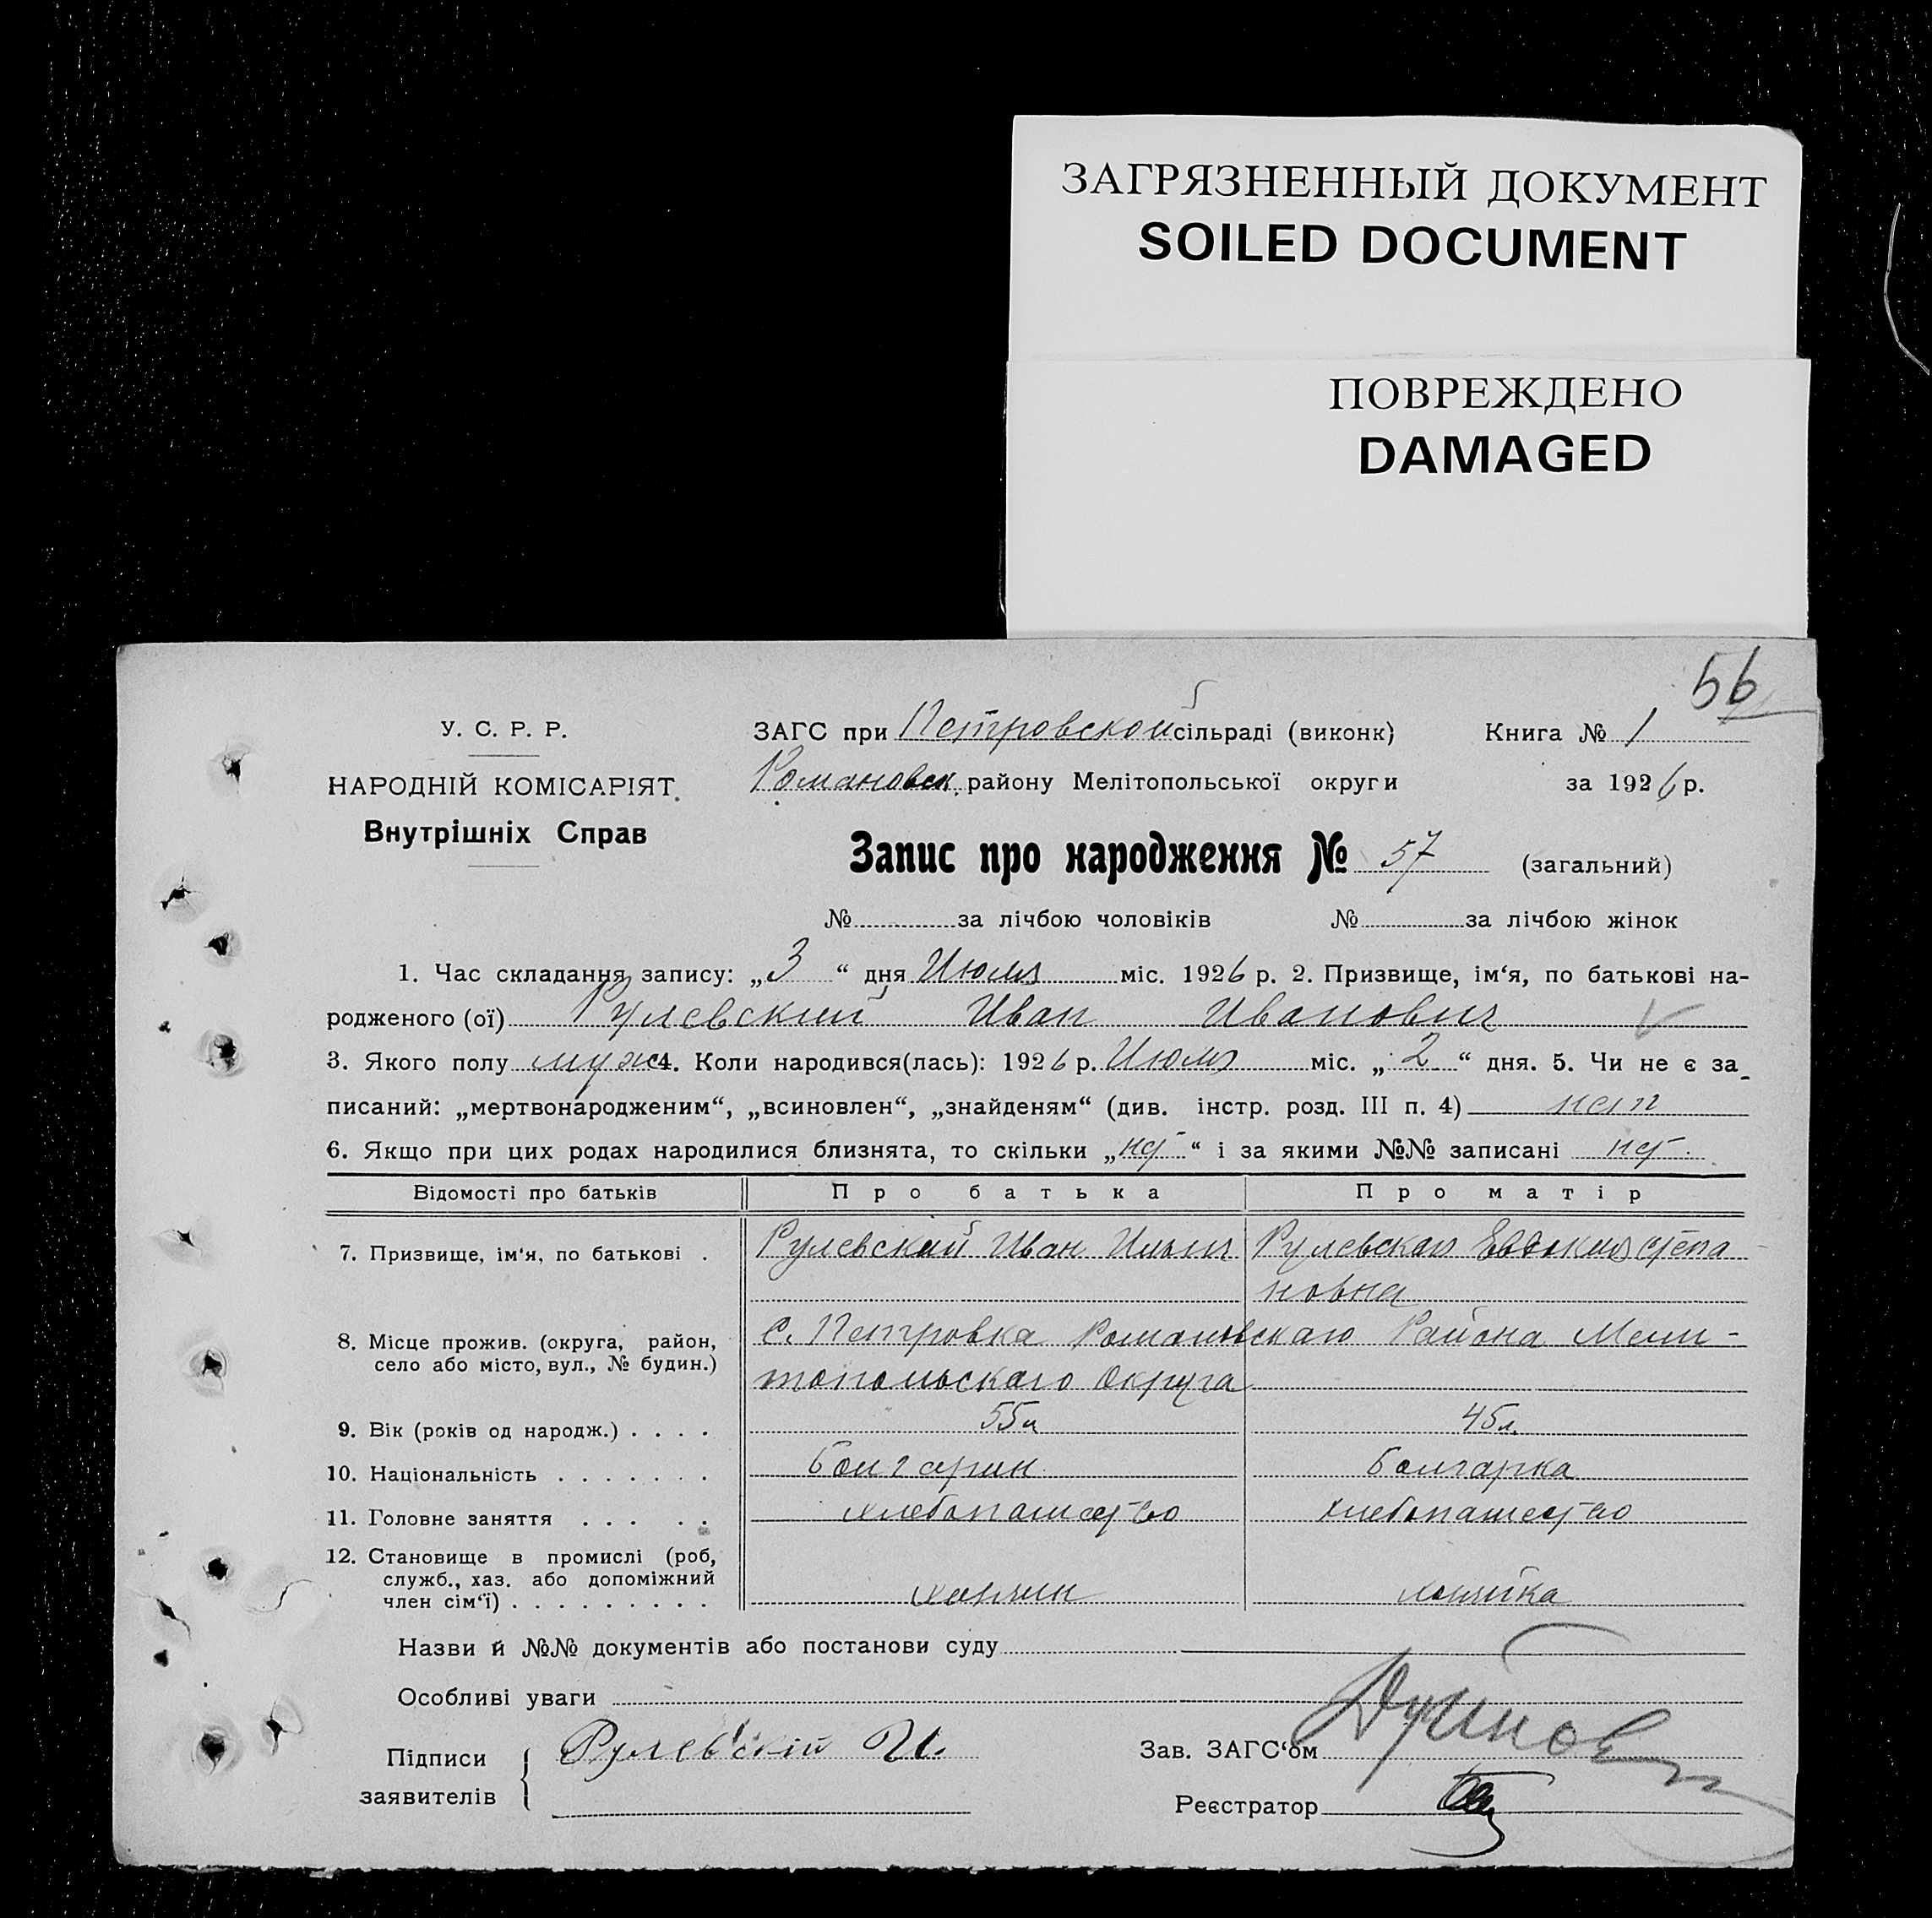 ЗАГРЯЗНЕННЫЙ ДОКУМЕНТ
SOILED DOCUMENT
ПОВРЕЖДЕНО
DAMAGED
56
У. С. Р. Р.
НАРОДНІЙ КОМІСАРІЯТ
Внутрішніх Справ
ЗАГС при Петровской сільраді (виконк)
Книга № 1
Романовск. району Мелітопольської округи
за 1926 р.
Запис про народження № 57 (загальний)
№ за лічбою чоловіків № за лічбою жінок
1. Час складання запису: „3“ дня Июля міс. 1926 р. 2. Призвище, ім‘я, по батькові на-
родженого (ої) Рулевский Иван Иванович
3. Якого полу муж 4. Коли народився(лась): 1926 р. Июля міс. „2“ дня. 5. Чи не є за-
писаний: „мертвонародженим“, „всиновлен“, „знайденям“ (див. інстр. розд. III п. 4) нет
6. Якщо при цих родах народилися близнята, то скільки „нет“ і за якими №№ записані нет.
Відомості про батьків Про батька Про матір
7. Призвище, ім‘я, по батькові . Рулевский Иван Ильич Рулевская Евдокия Степа
новна
8. Місце прожив. (округа, район, село або місто, вул., № будин.) С. Петровка Романовскаго Района Мели-
топольскаго Округа
9. Вік (років од народж.) . . . . 55 л 45 л.
10. Національність . . . . . . . Болгарин Болгарка
11. Головне заняття . . . . . хлебопашество хлебопашество
12. Становище в промислі (роб,
служб., хаз. або допоміжний
член сім‘ї) . . . . . . . . . хозяин хозяйка
Назви й №№ документів або постанови суду
Особливі уваги
Підписи
заявителів
Рулевскій И.
Зав. ЗАГС‘ом
Реєстратор